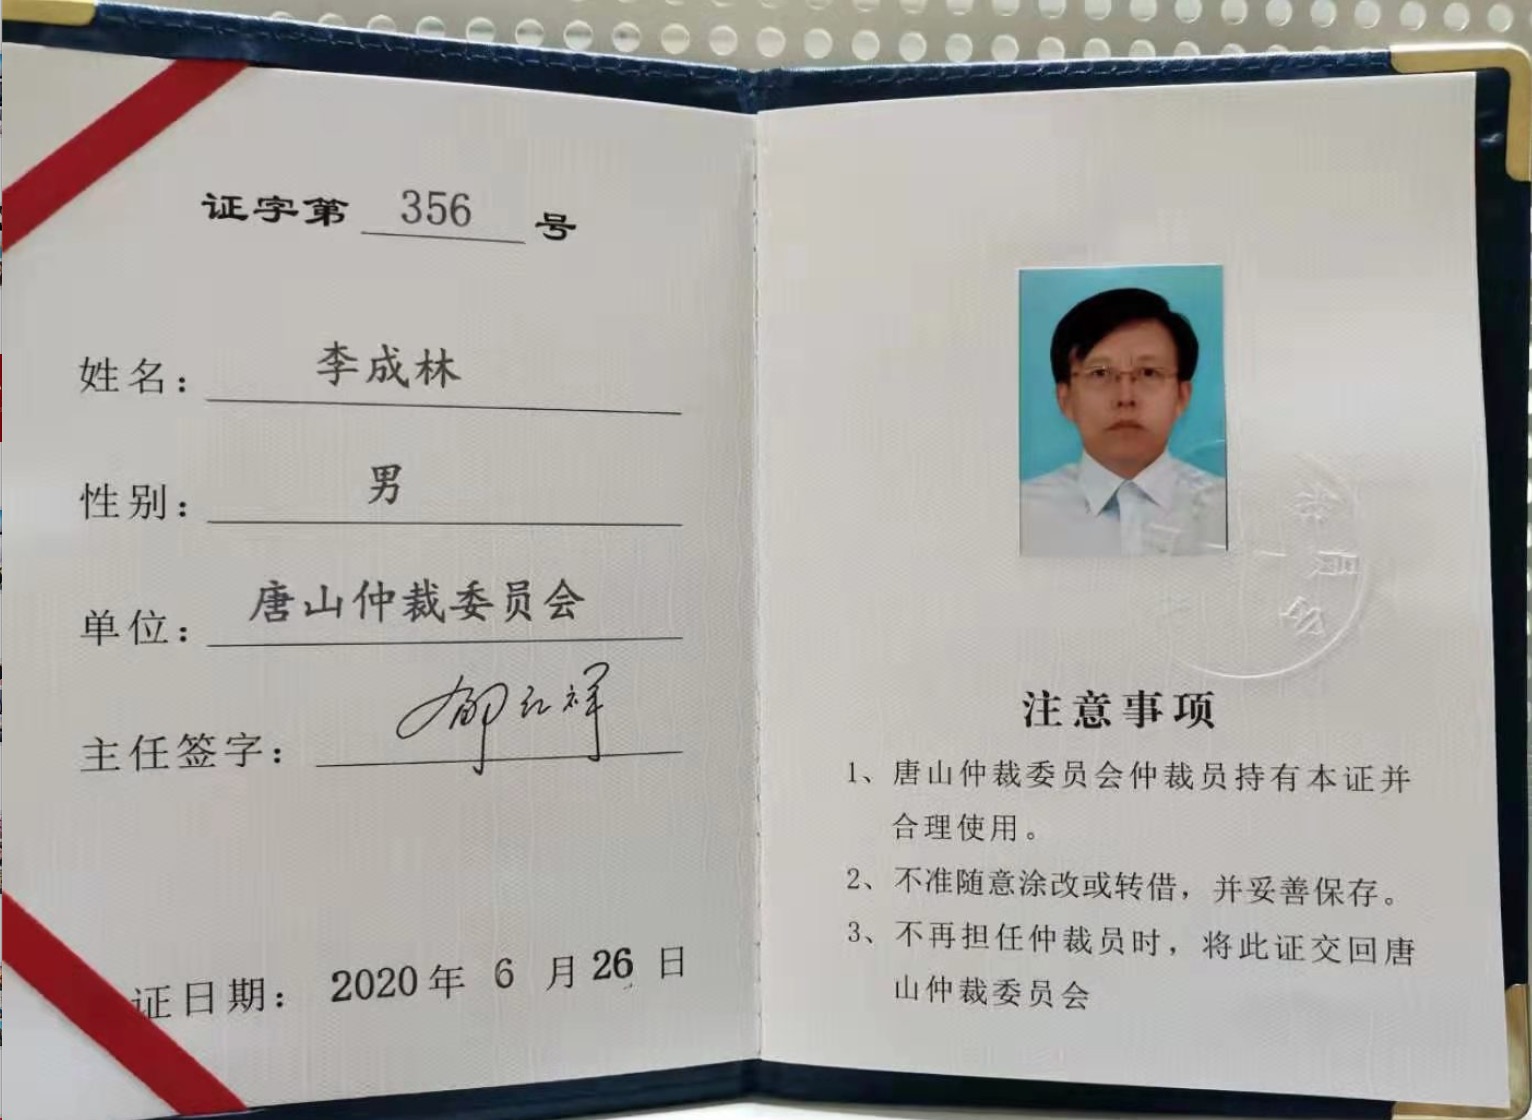 证字第 356 号
姓名： 李成林
性别： 男
单位： 唐山仲裁委员会
主任签字：
证日期： 2020年 6 月 26 日
注意事项
1、唐山仲裁委员会仲裁员持有本证并
合理使用。
2、不准随意涂改或转借，并妥善保存。
3、不再担任仲裁员时，将此证交回唐
山仲裁委员会